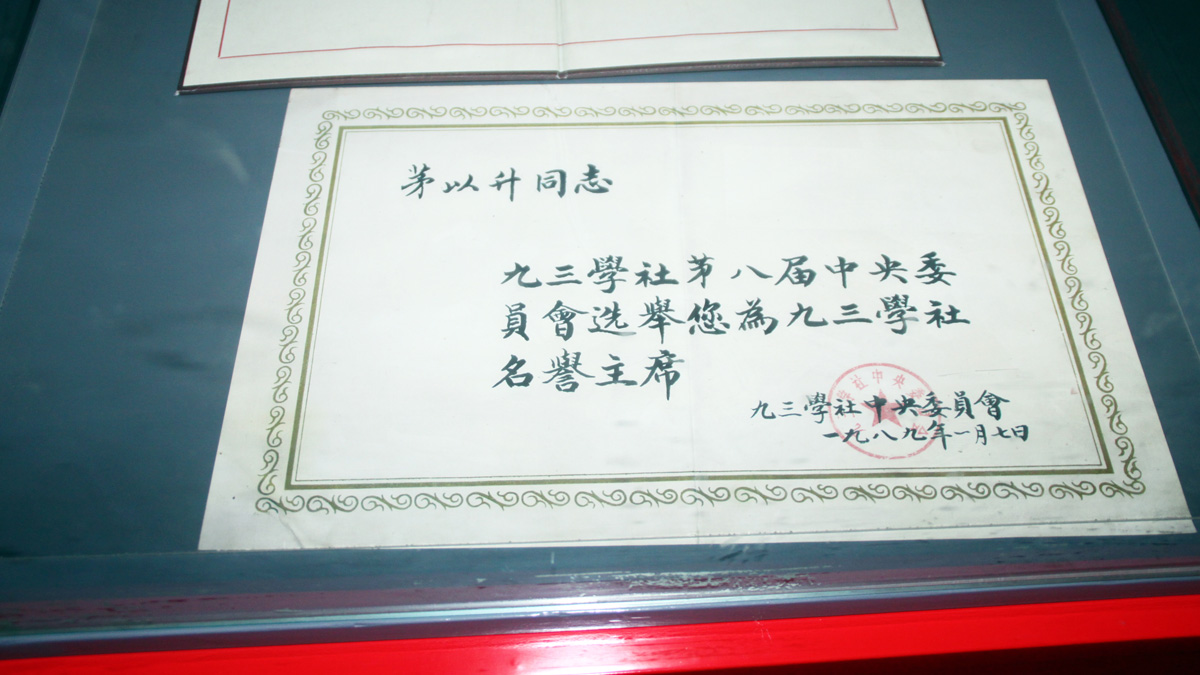 茅以升同志
九三學社第八届中央委
員會选舉您為九三學社
名譽主席
九三學社中央委員會
一九八九年一月七日